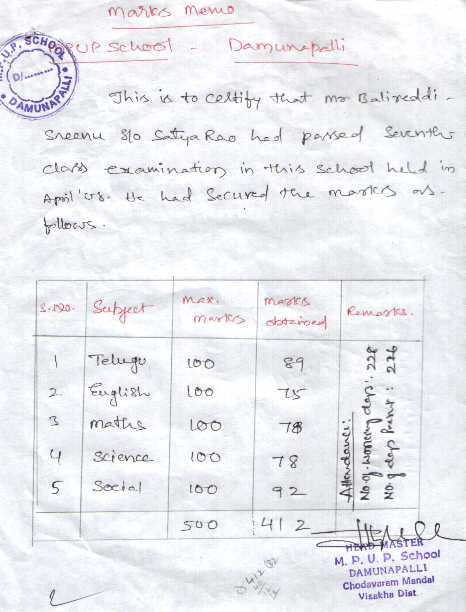 Marks Memo
M.P.U.P. SCHOOL
D/.........
DAMUNAPALLI
PUP School - Damunapalli
This is to Certify that Mr Balireddi -
Sreenu S/o Satya Rao had passed Seventh
class examination in this school held in
April'08. He had Secured the marks as
follows.
S.No. Subject Max. marks Marks obtained Remarks.
1 Telugu 100 89
2. English 100 75
3 maths 100 78
4 Science 100 78
5 Social 100 92
500 412
Attendance:
No. of. working days: 228
No of days Present: 226
HEAD MASTER
M. P. U. P. School
DAMUNAPALLI
Chodavaram Mandal
Visakha Dist